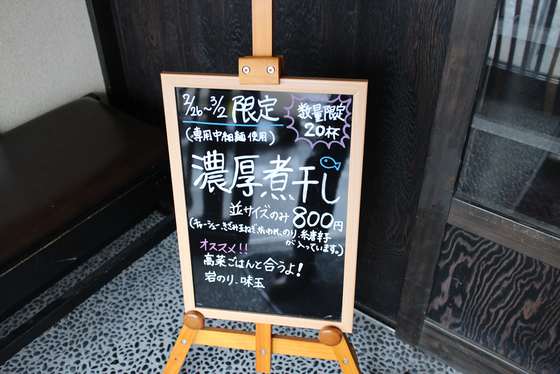 2/26～3/2 限定
数量限定
20杯
(専用中細麺使用)
濃厚煮干し
並サイズのみ 800円
(チャーシュー、きざみ玉ねぎ、かいわれ、のり、糸唐辛子
が入っています。)
オススメ!!
高菜ごはんと合うよ!
岩のり、味玉